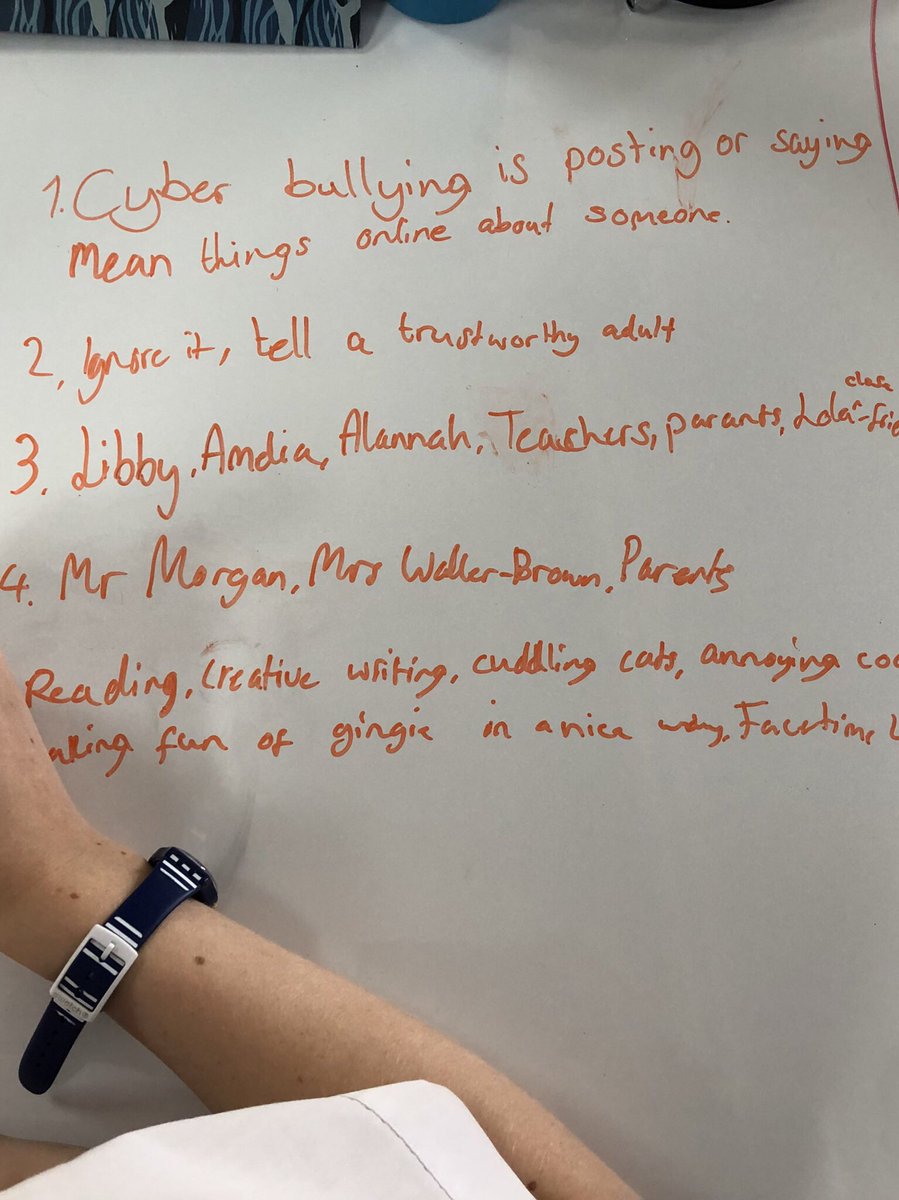 1. Cyber bullying is posting or saying
mean things online about someone.
2, Ignore it, tell a trustworthy adult
close
3. Libby, Amdia, Alannah, Teachers, parants, Lola-frie
4. Mr Morgan, Mrs Waller-Brown, Parents
Reading, creative writing, cuddling cats, annoying coo
aking fun of gingie in a nice way, Facetime, L
swatch